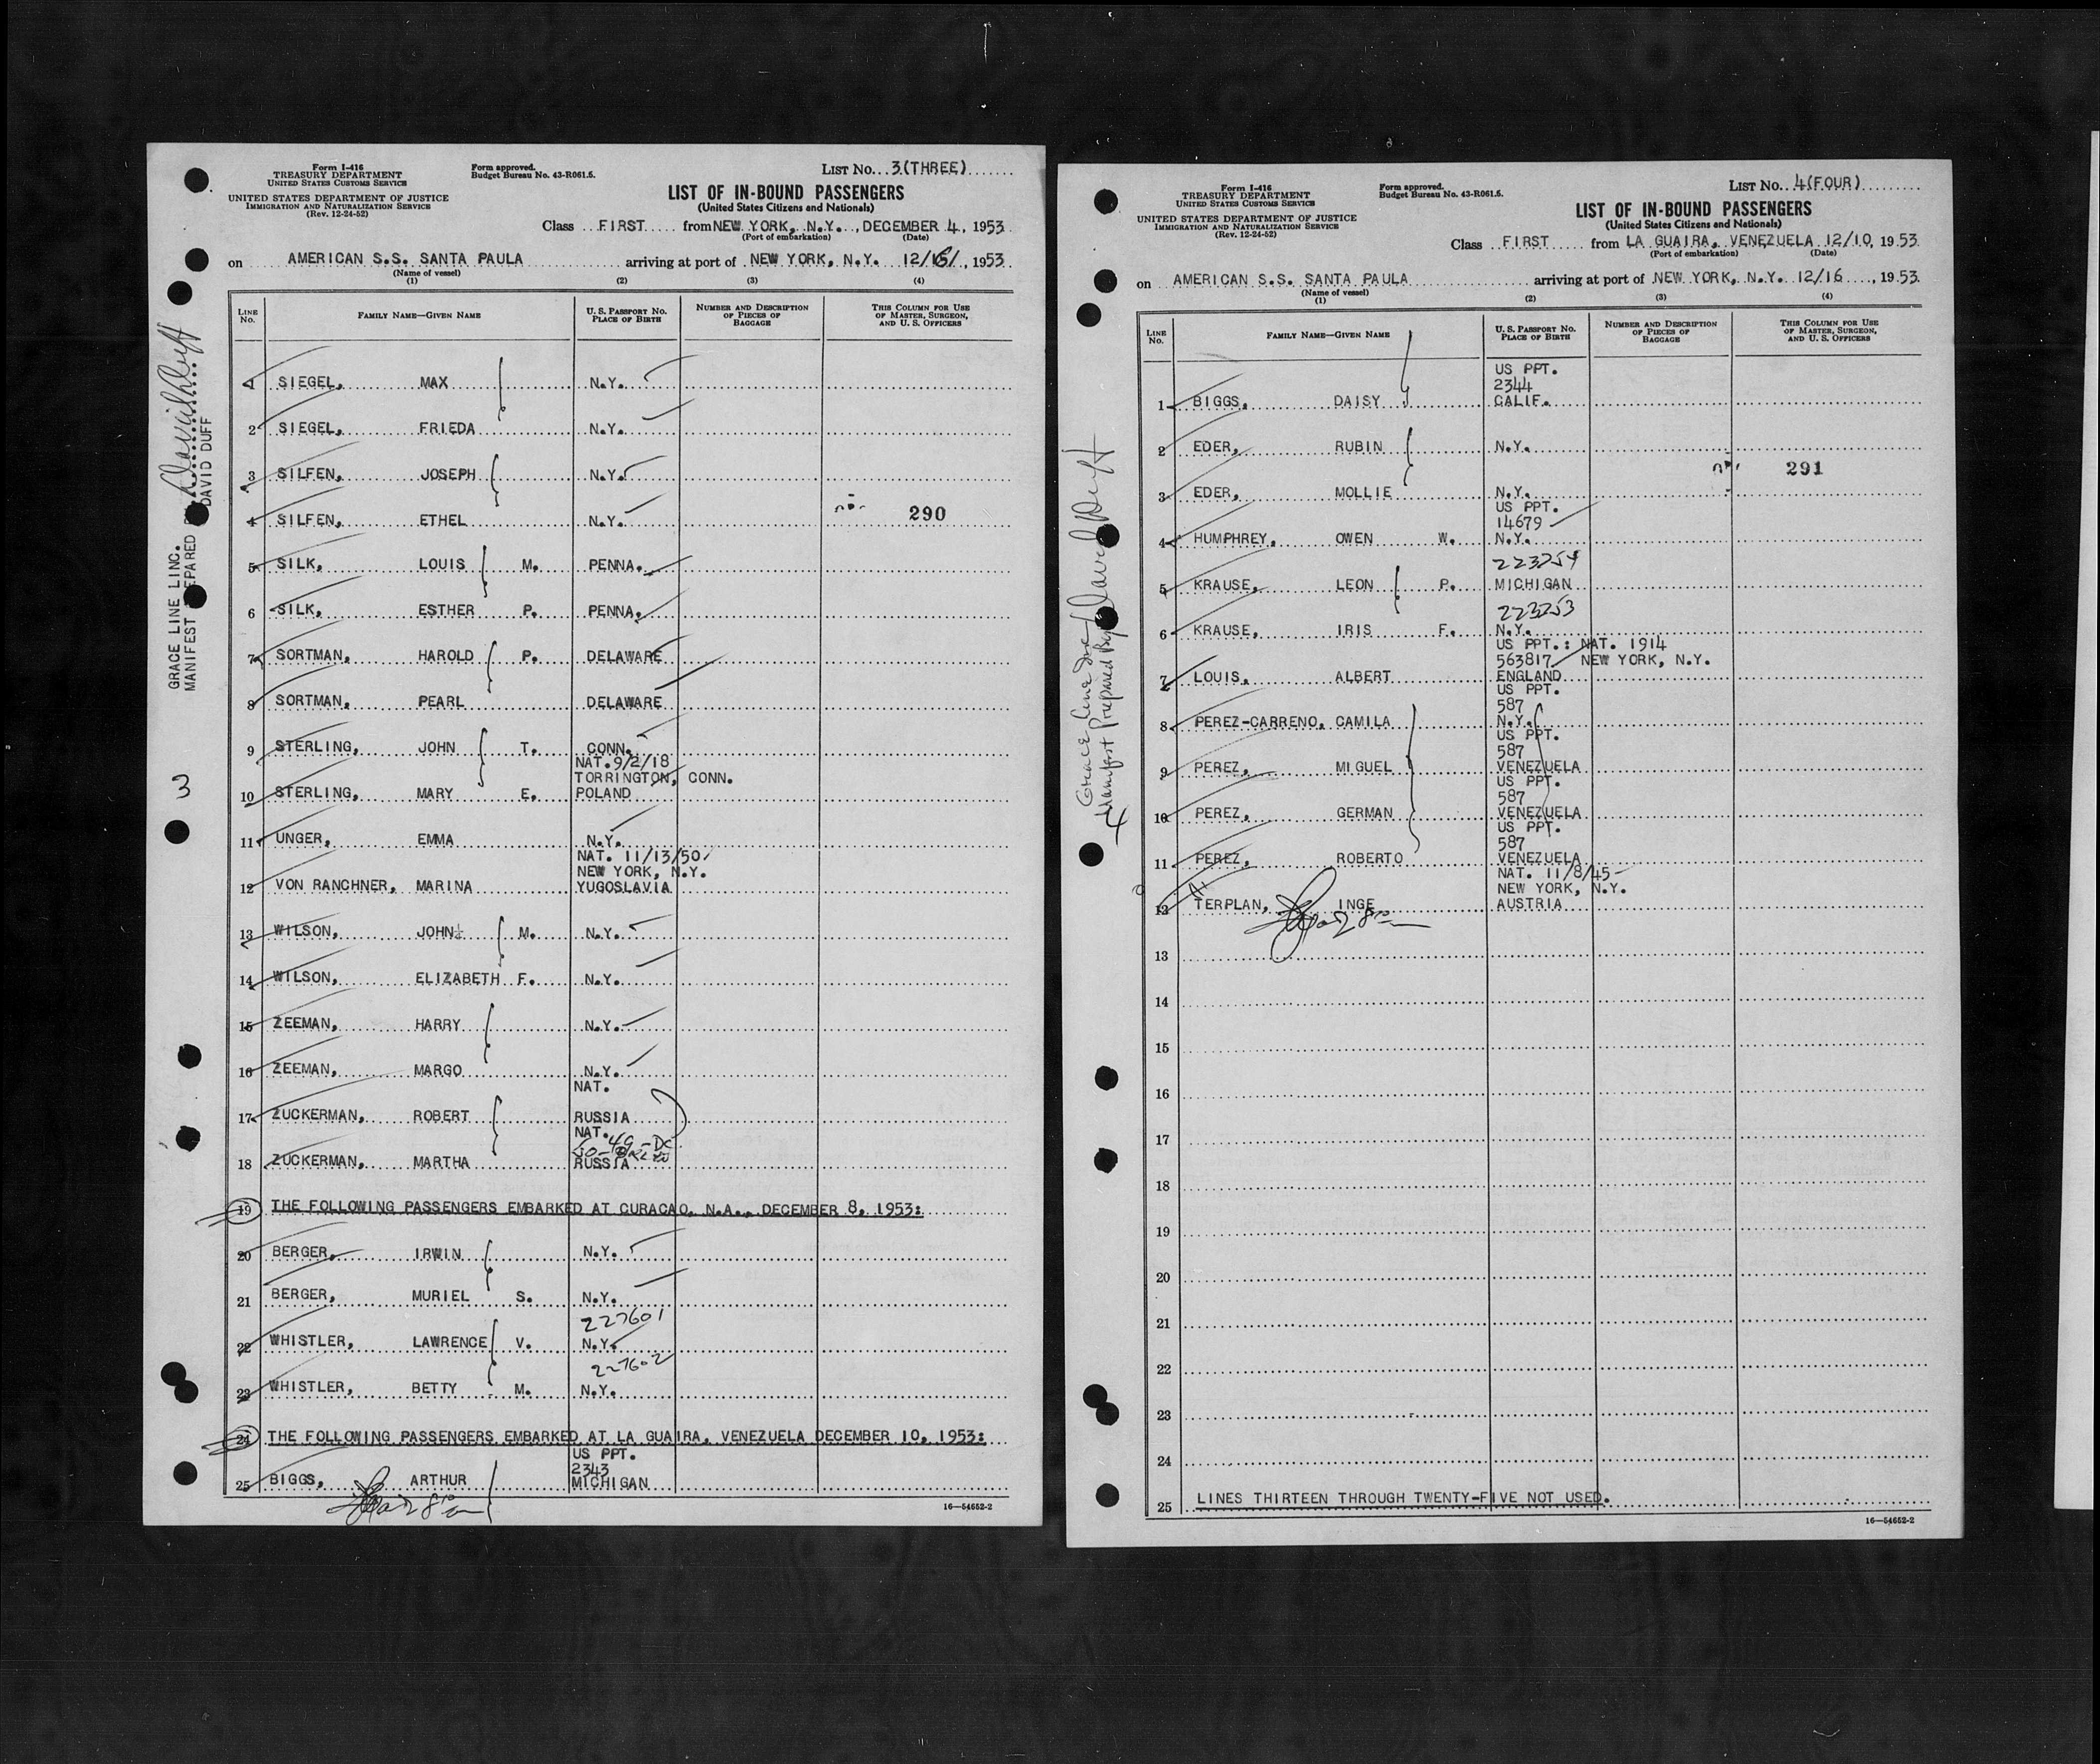 Form I-416
TREASURY DEPARTMENT
UNITED STATES CUSTOMS SERVICE
UNITED STATES DEPARTMENT OF JUSTICE
IMMIGRATION AND NATURALIZATION SERVICE
(Rev. 12-24-52)
Form approved.
Budget Bureau No. 43-R061.5.
LIST No. 3(THREE)
LIST OF IN-BOUND PASSENGERS
(United States Citizens and Nationals)
Class FIRST from NEW YORK, N.Y., DECEMBER 4, 1953
(Port of embarkation) (Date)
on AMERICAN S.S. SANTA PAULA arriving at port of NEW YORK, N.Y. 12/16/, 1953
(Name of vessel)
(1) (2) (3) (4)
LINE No. FAMILY NAME—GIVEN NAME U. S. PASSPORT NO. PLACE OF BIRTH NUMBER AND DESCRIPTION OF PIECES OF BAGGAGE THIS COLUMN FOR USE OF MASTER, SURGEON, AND U. S. OFFICERS
1 SIEGEL, MAX N.Y.
2 SIEGEL, FRIEDA N.Y.
3 SILFEN, JOSEPH N.Y.
4 SILFEN, ETHEL N.Y. 290
5 SILK, LOUIS M. PENNA.
6 SILK, ESTHER P. PENNA.
7 SORTMAN, HAROLD P. DELAWARE
8 SORTMAN, PEARL DELAWARE
9 STERLING, JOHN T. CONN.
NAT.9/2/18
TORRINGTON, CONN.
10 STERLING, MARY E. POLAND
11 UNGER, EMMA N.Y.
NAT. 11/13/50
NEW YORK, N.Y.
12 VON RANCHNER, MARINA YUGOSLAVIA
13 WILSON, JOHN M. N.Y.
14 WILSON, ELIZABETH F. N.Y.
15 ZEEMAN, HARRY N.Y.
16 ZEEMAN, MARGO N.Y.
NAT.
17 ZUCKERMAN, ROBERT RUSSIA
NAT.
18 ZUCKERMAN, MARTHA RUSSIA
19 THE FOLLOWING PASSENGERS EMBARKED AT CURACAO, N.A., DECEMBER 8, 1953:
20 BERGER, IRWIN N.Y.
21 BERGER, MURIEL S. N.Y.
227601
22 WHISTLER, LAWRENCE V. N.Y.
227602
23 WHISTLER, BETTY M. N.Y.
24 THE FOLLOWING PASSENGERS EMBARKED AT LA GUAIRA, VENEZUELA DECEMBER 10, 1953:
US PPT.
2343
25 BIGGS, ARTHUR MICHIGAN
16—54652-2
GRACE LINE LINC.
MANIFEST PREPARED
DAVID DUFF
3
Form I-416
TREASURY DEPARTMENT
UNITED STATES CUSTOMS SERVICE
UNITED STATES DEPARTMENT OF JUSTICE
IMMIGRATION AND NATURALIZATION SERVICE
(Rev. 12-24-52)
Form approved.
Budget Bureau No. 43-R061.5.
LIST No. 4(FOUR)
LIST OF IN-BOUND PASSENGERS
(United States Citizens and Nationals)
Class FIRST from LA GUAIRA, VENEZUELA 12/10, 1953
(Port of embarkation) (Date)
on AMERICAN S.S. SANTA PAULA arriving at port of NEW YORK, N.Y. 12/16, 1953
(Name of vessel)
(1) (2) (3) (4)
LINE No. FAMILY NAME—GIVEN NAME U. S. PASSPORT NO. PLACE OF BIRTH NUMBER AND DESCRIPTION OF PIECES OF BAGGAGE THIS COLUMN FOR USE OF MASTER, SURGEON, AND U. S. OFFICERS
US PPT.
2344
1 BIGGS, DAISY CALIF.
2 EDER, RUBIN N.Y.
291
3 EDER, MOLLIE N.Y.
US PPT.
14679
4 HUMPHREY, OWEN W. N.Y.
223254
5 KRAUSE, LEON P. MICHIGAN
223253
6 KRAUSE, IRIS F. N.Y.
US PPT.: NAT. 1914
563817 NEW YORK, N.Y.
7 LOUIS, ALBERT ENGLAND
US PPT.
587
8 PEREZ-CARRENO, CAMILA N.Y.
US PPT.
587
9 PEREZ, MIGUEL VENEZUELA
US PPT.
587
10 PEREZ, GERMAN VENEZUELA
US PPT.
587
11 PEREZ, ROBERTO VENEZUELA
NAT. 11/8/45
NEW YORK, N.Y.
12 TERPLAN, INGE AUSTRIA
13
14
15
16
17
18
19
20
21
22
23
24
25 LINES THIRTEEN THROUGH TWENTY-FIVE NOT USED.
16—54652-2
Grace Line Inc
Manifest Prepared By David Duff
4